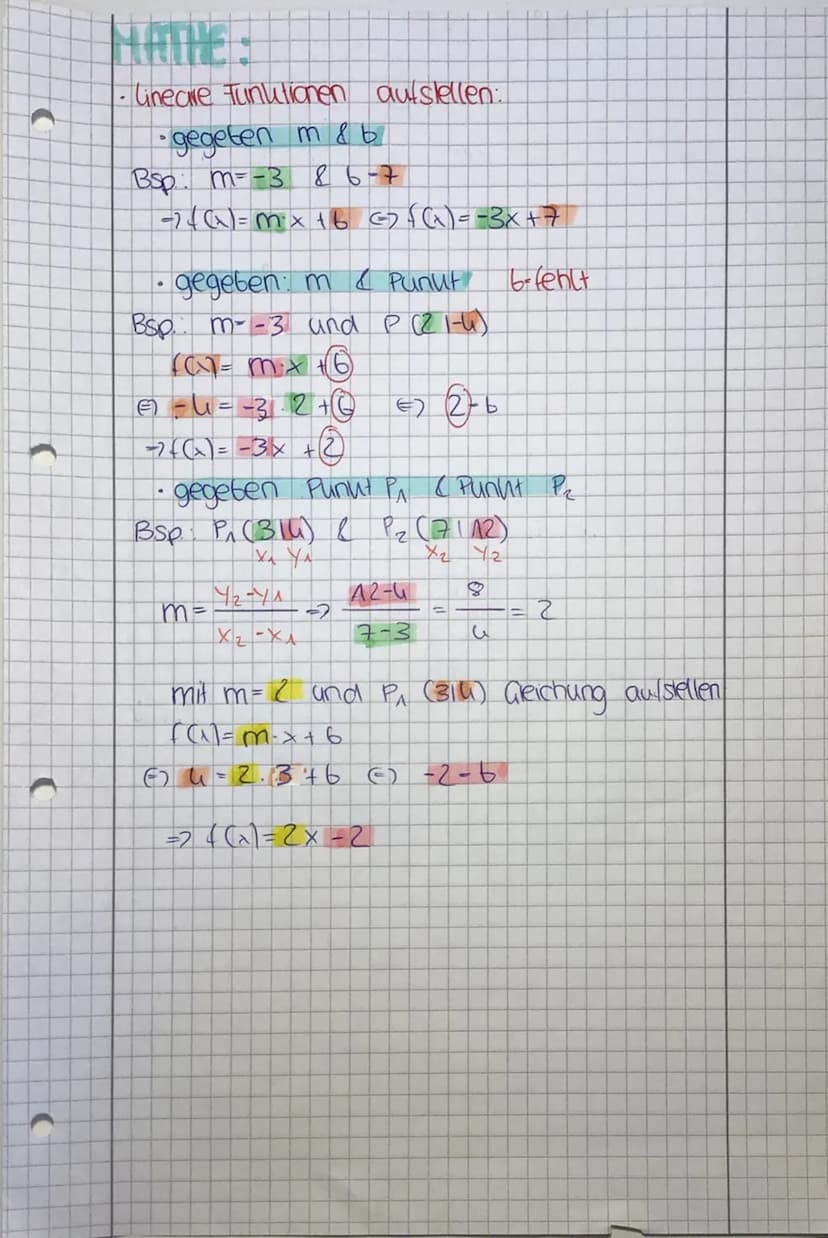 MATHE:
· lineare Funktionen aufstellen:
· gegeben m & b
Bsp.: m=-3 & b=7
→ f(x)= m·x +b <=> f(x)= -3x+7
· gegeben: m & Punkt b=fehlt
Bsp.: m=-3 und P(2|-4)
f(x)= m·x +b
<=> -4 = -3 · 2 +b <=> 2=b
→ f(x)= -3x +2
· gegeben Punkt P₁ & Punkt P₂
Bsp: P₁(3|4) & P₂(7|12)
x₁ y₁ x₂ y₂
m= (y₂-y₁)/(x₂-x₁) => (12-4)/(7-3) = 8/4 = 2
mit m=2 und P₁ (3|4) Gleichung aufstellen
f(x)=m·x+b
<=> 4=2·3+b <=> -2=b
=> f(x)=2x-2